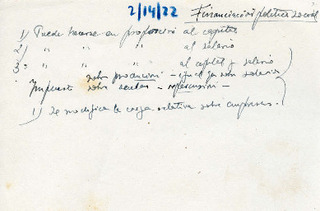 2/14/22 Financiación política social
1) Puede hacerse en proporción al capital
2) " " " al salario
3) " " " al capital y salario
Impuesto sobre producción - que el ya son salarios
sobre rentas - repercusión -
1) Se modifica la carga relativa sobre empresas.